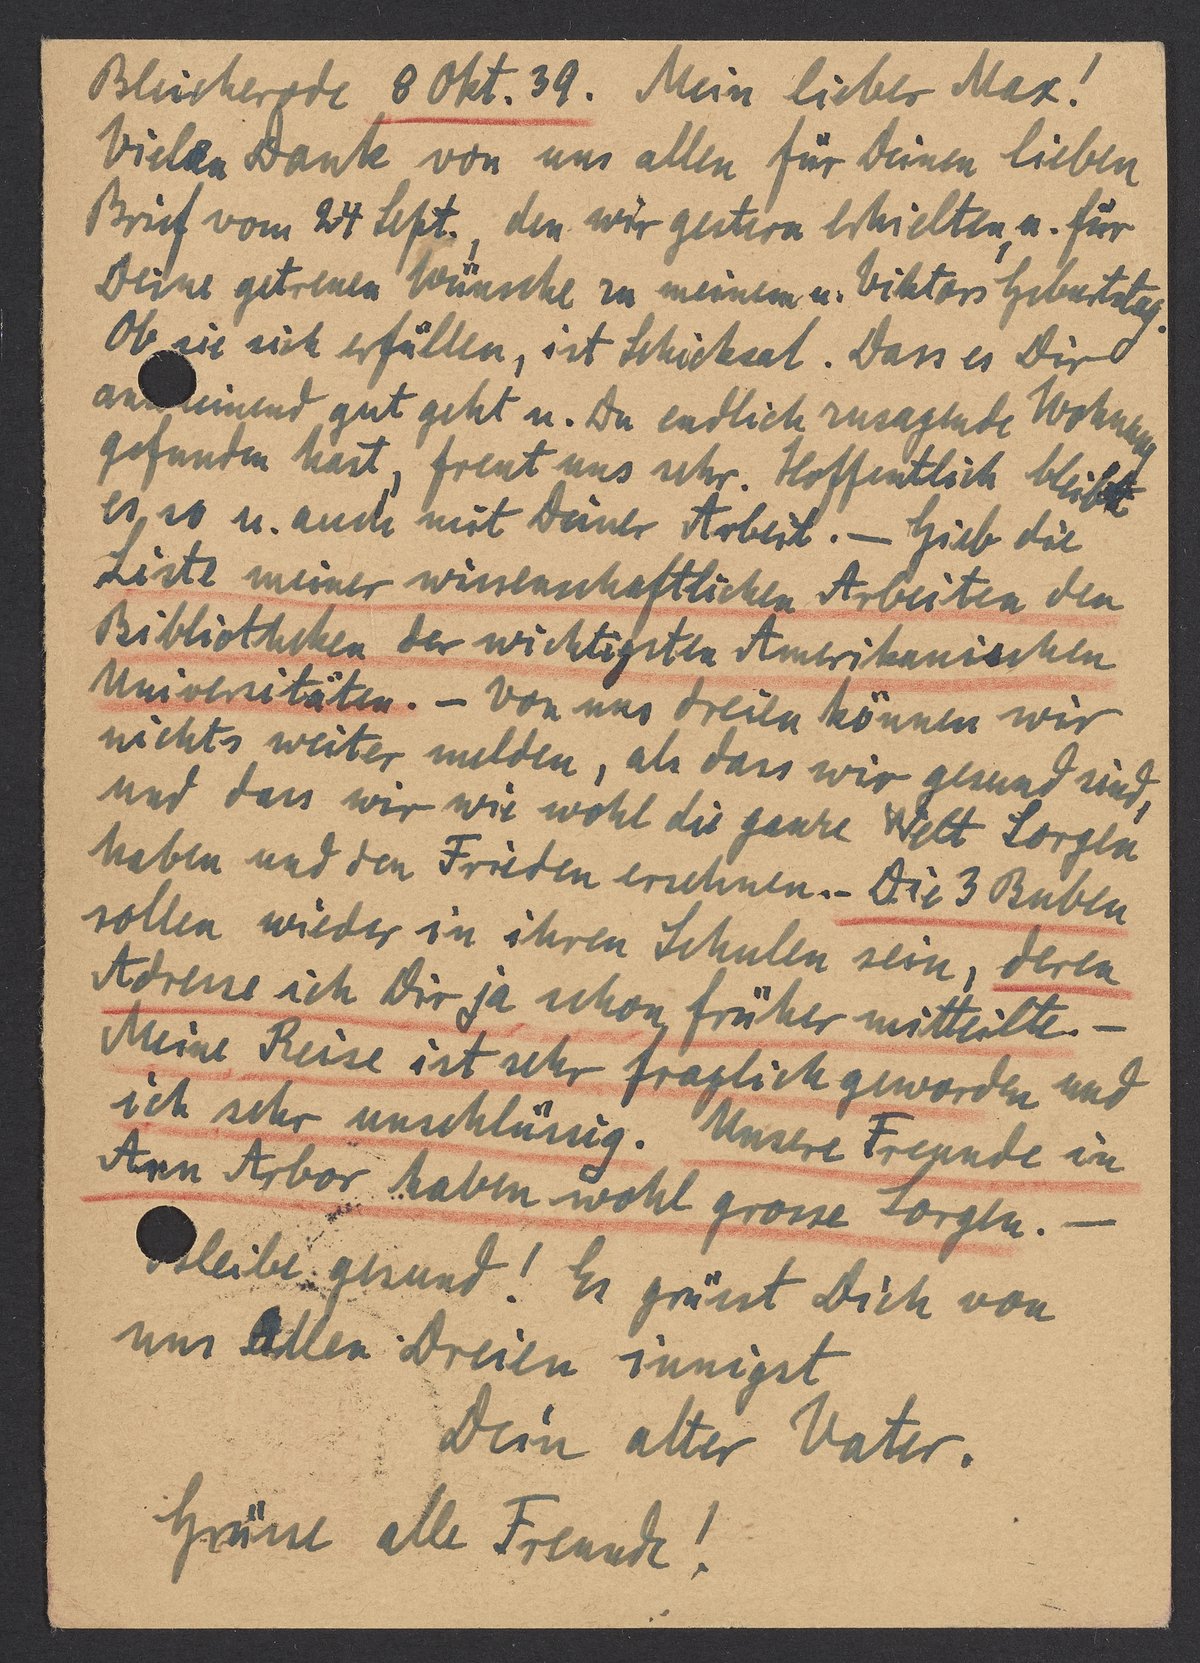 Bleicherode 8 Okt. 39. Mein lieber Max!
Vielen Dank von uns allen für Deinen lieben
Brief vom 24 Sept., den wir gestern erhielten, u. für
Deine getreuen Wünsche zu meinem u. Viktors Geburtstag.
Ob sie sich erfüllen, ist Schicksal. Dass es Dir
anscheinend gut geht u. Du endlich zusagende Wohnung
gefunden hast, freut uns sehr. Hoffentlich bleibt
es so u. auch mit Deiner Arbeit. — Gieb die
Liste meiner wissenschaftlichen Arbeiten den
Bibliotheken der wichtigsten Amerikanischen
Universitäten. — Von uns dreien können wir
nichts weiter melden, als dass wir gesund sind,
und dass wir wie wohl die ganze Welt Sorgen
haben und den Frieden ersehnen. – Die 3 Buben
sollen wieder in ihren Schulen sein, deren
Adresse ich Dir ja schon früher mitteilte. –
Meine Reise ist sehr fraglich geworden und
ich sehr unschlüssig. Unsere Freunde in
Ann Arbor haben wohl grosse Sorgen. —
Bleibe gesund! Es grüsst Dich von
uns Allen Dreien innigst
Dein alter Vater.
Grüsse alle Freunde!